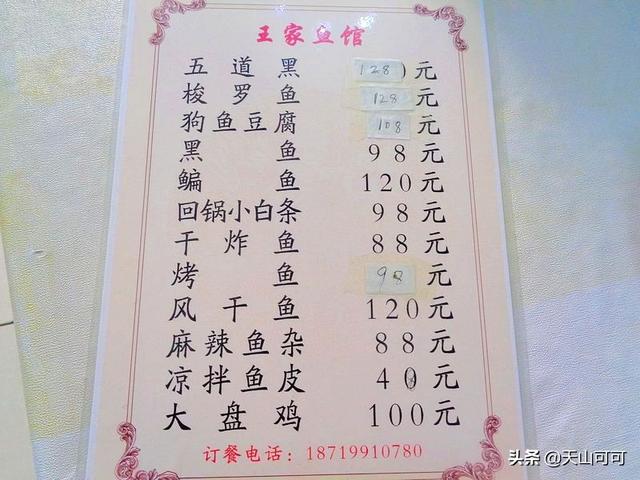 王家鱼馆
五道黑 128元
梭罗鱼 128元
狗鱼豆腐 108元
黑鱼 98元
鳊鱼 120元
回锅小白条 98元
干炸鱼 88元
烤鱼 98元
风干鱼 120元
麻辣鱼杂 88元
凉拌鱼皮 40元
大盘鸡 100元
订餐电话：18719910780
头条 @天山可可